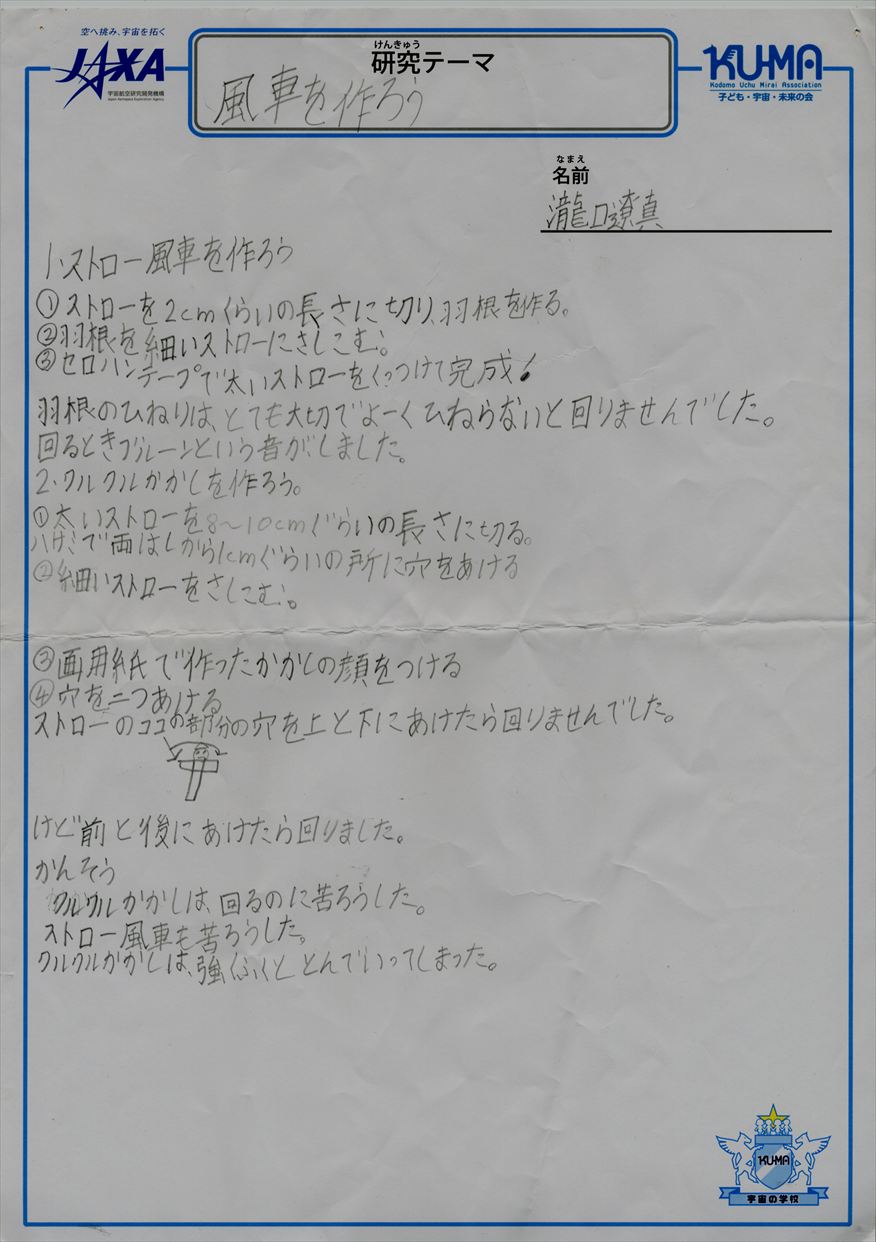 空へ挑み、宇宙を拓く
JAXA
宇宙航空研究開発機構
Japan Aerospace Exploration Agency
けんきゅう
研究テーマ
風車を作ろう
KU-MA
Kodomo Uchu Mirai Association
子ども・宇宙・未来の会
なまえ
名前
瀧口遼真
1.ストロー風車を作ろう
①ストローを2cmくらいの長さに切り、羽根を作る。
②羽根を細いストローにさしこむ。
③セロハンテープで太いストローをくっつけて完成!
羽根のひねりは、とても大切でよーくひねらないと回りませんでした。
回るときブルーンという音がしました。
2.クルクルかかしを作ろう。
①太いストローを8～10cmぐらいの長さに切る。
ハサミで両はしから1cmぐらいの所に穴をあける
②細いストローをさしこむ。
③画用紙で作ったかかしの顔をつける
④穴を二つあける
ストローのココの部分の穴を上と下にあけたら回りませんでした。
けど前と後にあけたら回りました。
かんそう
クルクルかかしは、回るのに苦ろうした。
ストロー風車も苦ろうした。
クルクルかかしは、強くふくととんでいってしまった。
KU-MA
宇宙の学校